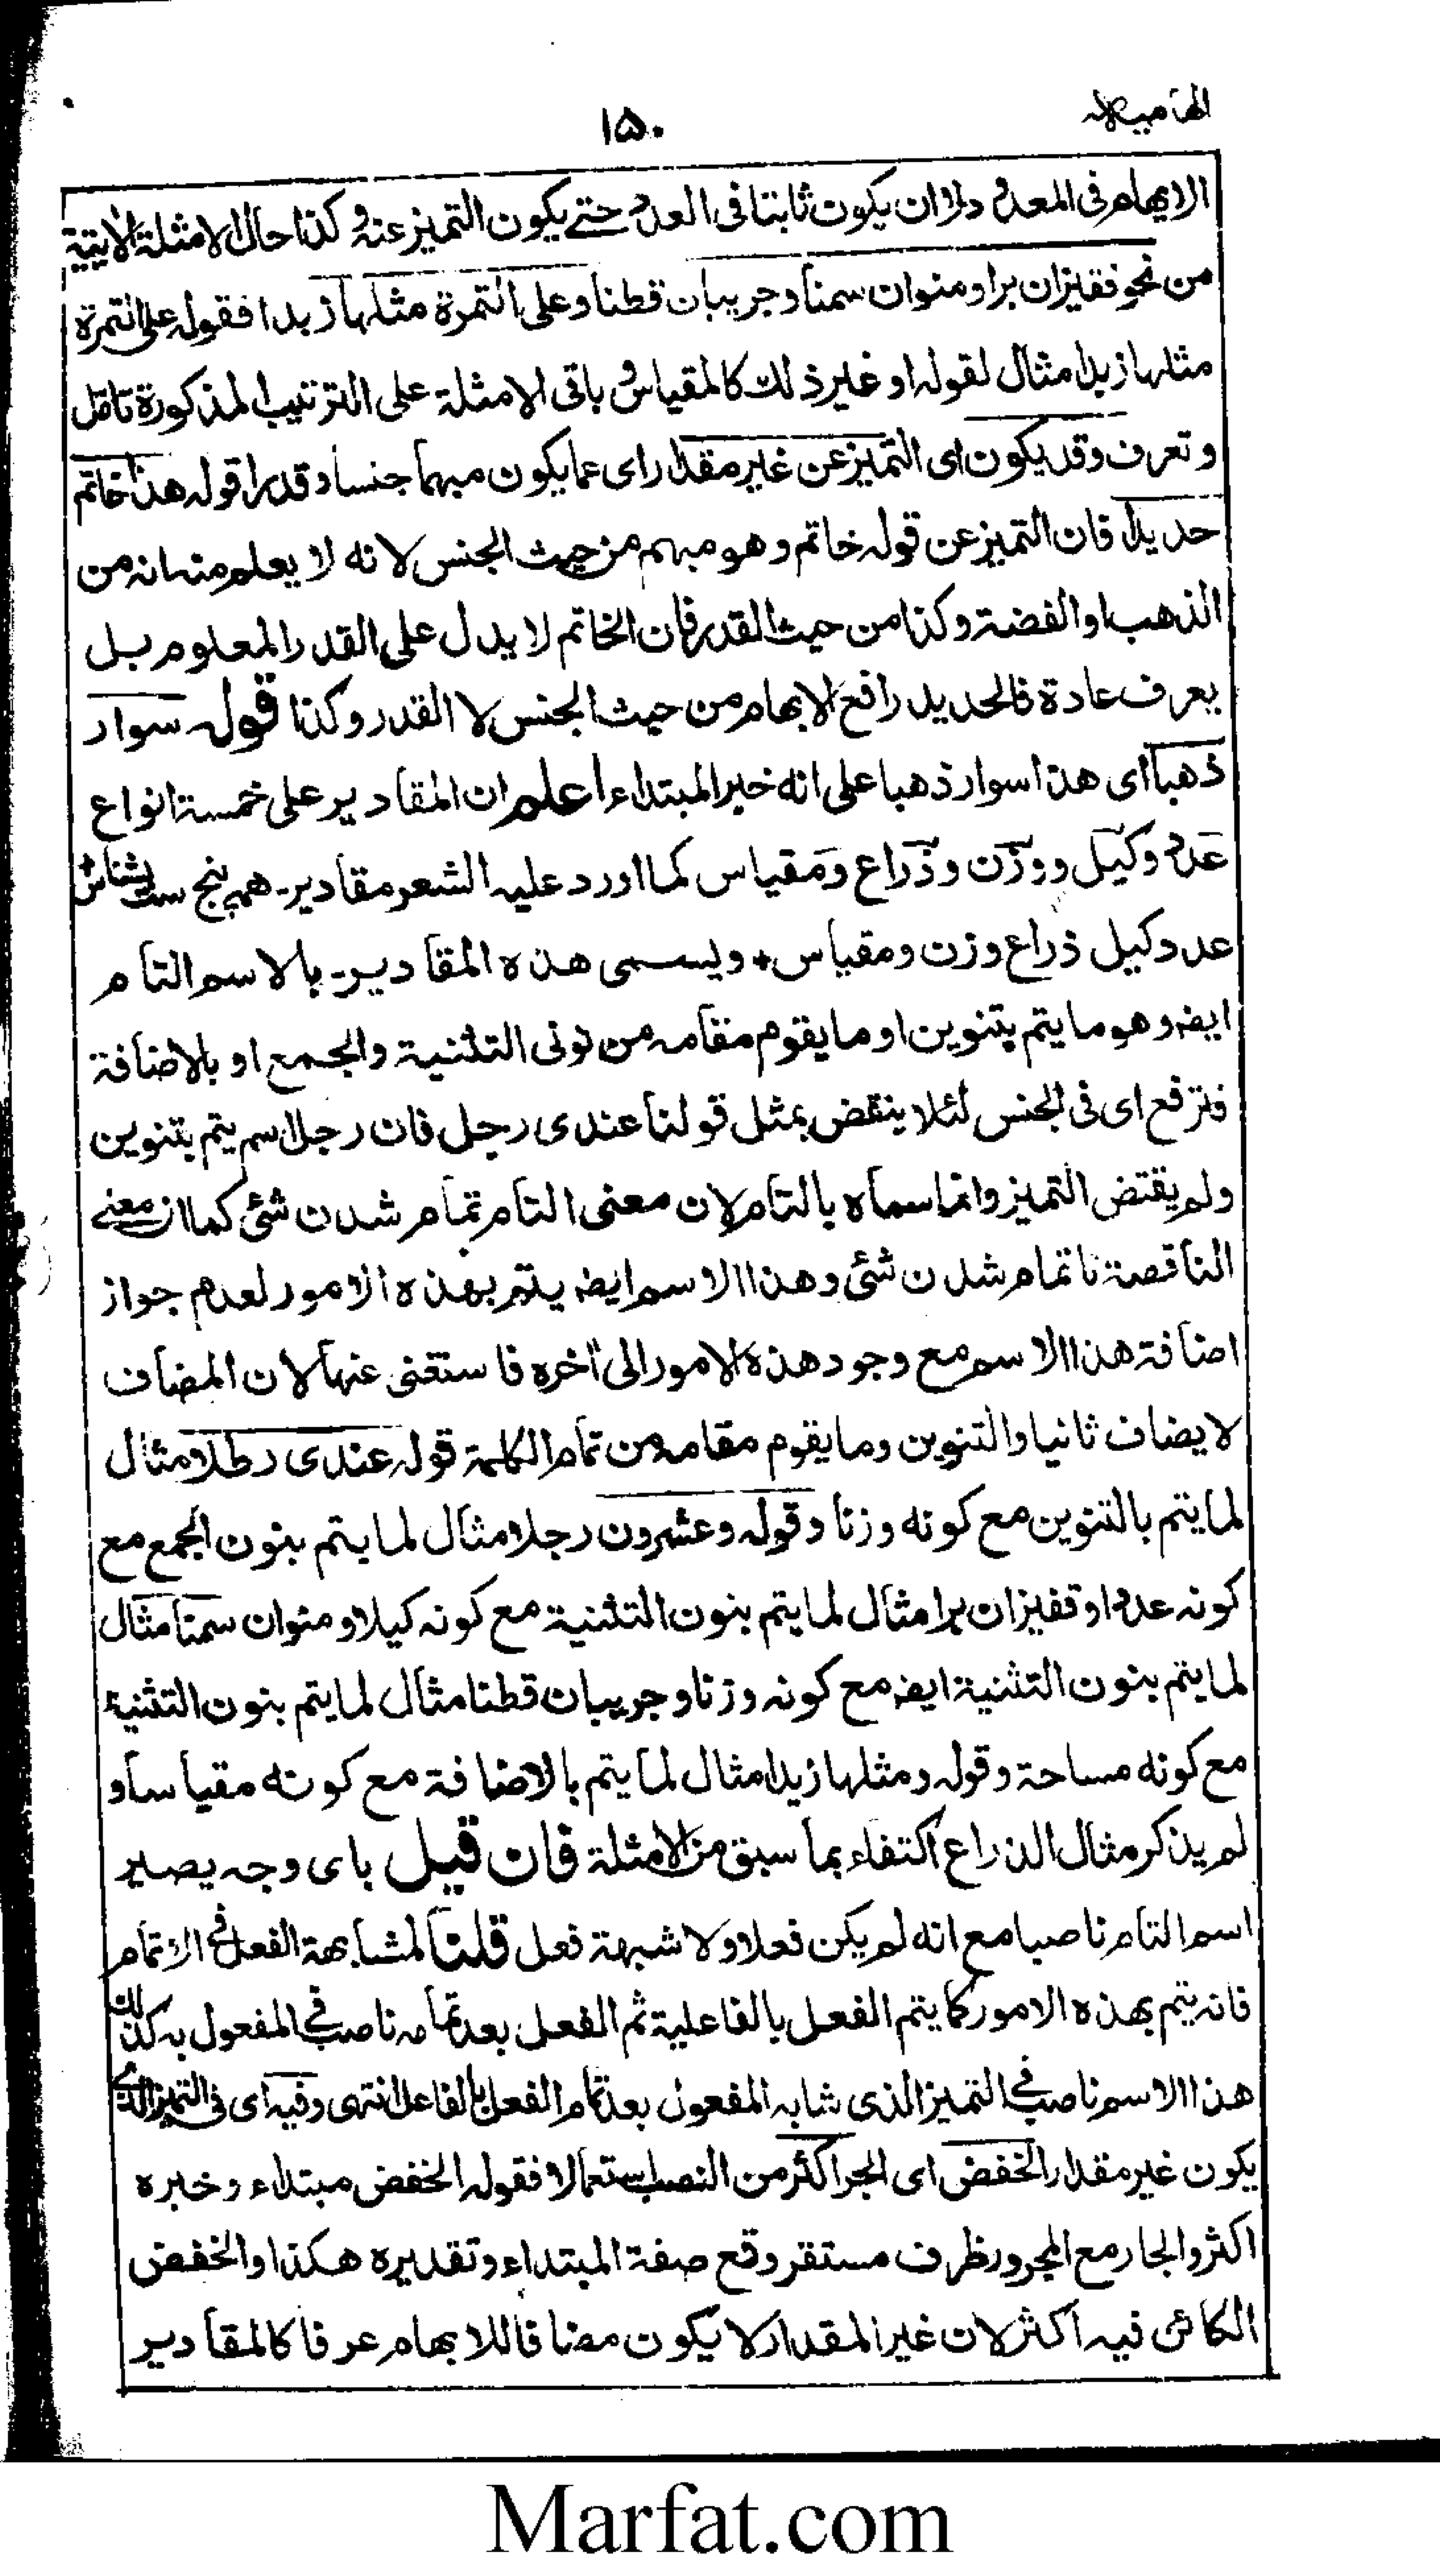 الهامية
١٥٠
الابهام فى المعدود لا ان يكون ثابتا فى العدد حتے يكون التميز عنه وكذا حال الامثلة الاتية
من نحو قفيزان برا ومنوان سمنا وجريبان قطنا وعلى التمرة مثلها زبدا فقوله على التمرة
مثلها زبدا مثال لقوله او غير ذلك كالمقياس و باقى الامثلة على الترتيب المذكورة تامل
و تعرف وقد يكون اى التميز عن غير مقدار اى عما يكون مبهما جنسا وقدرا قوله هذا خاتم
حديدا فان التميز عن قوله خاتم وهو مبهم من حيث الجنس لانه لا يعلم منه انه من
الذهب او الفضة وكذا من حيث القدر فان الخاتم لا يدل على القدر المعلوم بل
يعرف عادة فالحديد رافع الابهام من حيث الجنس لا القدر وكذا قوله سوار
ذهبا اى هذا سوار ذهبا على انه خبر المبتداء اعلم ان المقادير على خمسة انواع
عدد وكيل ووزن وذراع ومقياس كما اورد عليه الشعر مقادير۔ همه پنج ست بشناس
عدد كيل ذراع وزن ومقياس + ويسمى هذه المقادير۔ بالاسم التام
ايضه وهو ما يتم بتنوين او ما يقوم مقامه من نونى التثنية والجمع او بالاضافة
فترفع اى فى الجنس لئلا ينقض بمثل قولنا عندى رجل فان رجلا اسم يتم بتنوين
ولم يقتض التميز وانما سماه بالتام لان معنى التام تمام شدن شئ كما ان معنے
الناقصة ناتمام شدن شئ وهذا الاسم ايضه يتم بهذه الامور لعدم جواز
اضافة هذا الاسم مع وجود هذه الامور الى آخره فاستغنى عنها لان المضاف
لا يضاف ثانيا والتنوين وما يقوم مقامه من تمام الكلمة قوله عندى رطلا مثال
لما يتم بالتنوين مع كونه وزنا وقوله وعشرون رجلا مثال لما يتم بنون الجمع مع
كونه عددا وقفيزان برا مثال لما يتم بنون التثنية مع كونه كيلا ومنوان سمنا مثال
لما يتم بنون التثنية ايضه مع كونه وزنا وجريبان قطنا مثال لما يتم بنون التثنية
مع كونه مساحة وقوله ومثلها زبدا مثال لما يتم بالاضافة مع كونه مقياسا و
لم يذكر مثال الذراع اكتفاء بما سبق من الامثلة فان قيل باى وجه يصير
اسم التام ناصبا مع انه لم يكن فعلا ولا شبهة فعل قلنا لمشابهة الفعل فے الاتمام
فانه يتم بهذه الامور كما يتم الفعل بالفاعلية ثم الفعل بعد تمامه ناصب فے المفعول به كذلك
هذا الاسم ناصب فے التميز الذى شابه المفعول بعد تمام الفعل بالفاعل انتهى وفيه اى فى التميز الذى
يكون غير مقدار الخفض اى الجر اكثر من النصب استعمالا فقوله الخفض مبتداء وخبره
اكثر والجار مع المجرور ظرف مستقر وقع صفة المبتداء وتقديره هكذا والخفض
الكائن فيه اكثر لان غير المقدار لا يكون مضافا للابهام عرفا كالمقادير
Marfat.com